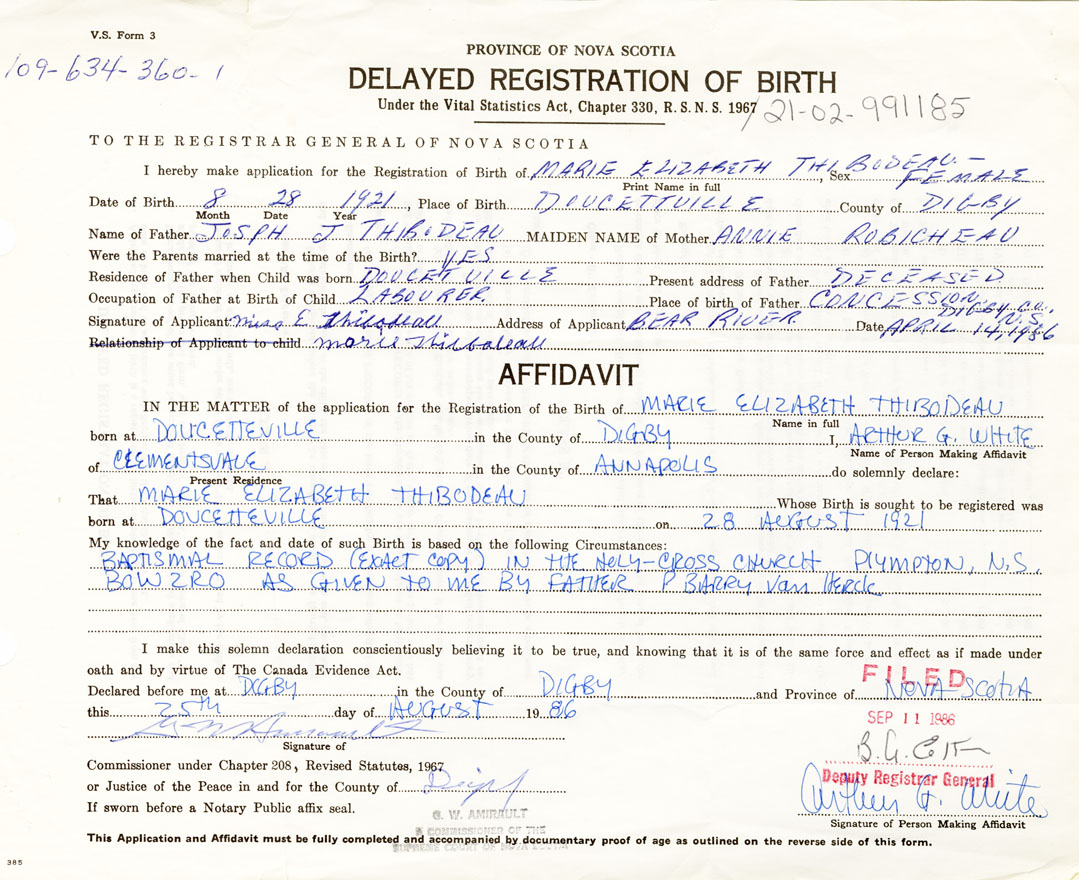 V.S. Form 3
109-634-360-1
PROVINCE OF NOVA SCOTIA
DELAYED REGISTRATION OF BIRTH
Under the Vital Statistics Act, Chapter 330, R.S.N.S. 1967 / 21-02-991185
TO THE REGISTRAR GENERAL OF NOVA SCOTIA
I hereby make application for the Registration of Birth of MARIE ELIZABETH THIBODEAU.-, Sex FEMALE
Print Name in full
Date of Birth 8 28 1921, Place of Birth DOUCETTVILLE County of DIGBY
Month Date Year
Name of Father JOSPH J THIBODEAU MAIDEN NAME of Mother ANNIE ROBICHEAU
Were the Parents married at the time of the Birth? YES
Residence of Father when Child was born DOUCETTVILLE Present address of Father DECEASED
Occupation of Father at Birth of Child LABOURER. Place of birth of Father CONCESSION, DIGBY CO., N.S.
Signature of Applicant Miss E Thibodeau Address of Applicant BEAR RIVER. Date APRIL 14, 1986
Relationship of Applicant to child Marie Thibodeau
AFFIDAVIT
IN THE MATTER of the application for the Registration of the Birth of MARIE ELIZABETH THIBODEAU
Name in full
born at DOUCETTEVILLE in the County of DIGBY I, ARTHUR G. WHITE
Name of Person Making Affidavit
of CLEMENTSVALE in the County of ANNAPOLIS do solemnly declare:
Present Residence
That MARIE ELIZABETH THIBODEAU Whose Birth is sought to be registered was
born at DOUCETTEVILLE on 28 AUGUST 1921
My knowledge of the fact and date of such Birth is based on the following Circumstances:
BAPTISMAL RECORD (EXACT COPY) IN THE HOLY-CROSS CHURCH PLYMPTON, N.S.
BOW 2RO AS GIVEN TO ME BY FATHER P BARRY Van HERCK
I make this solemn declaration conscientiously believing it to be true, and knowing that it is of the same force and effect as if made under
oath and by virtue of The Canada Evidence Act.
FILED
Declared before me at DIGBY in the County of DIGBY and Province of NOVA SCOTIA
this 25th day of AUGUST 1986
SEP 11 1986
Signature of
Commissioner under Chapter 208, Revised Statutes, 1967
Deputy Registrar General
or Justice of the Peace in and for the County of Digby
Arthur G. White
If sworn before a Notary Public affix seal.
G. W. AMIRAULT
Signature of Person Making Affidavit
A COMMISSIONER OF THE
This Application and Affidavit must be fully completed and accompanied by documentary proof of age as outlined on the reverse side of this form.
SUPREME COURT OF NOVA SCOTIA
385